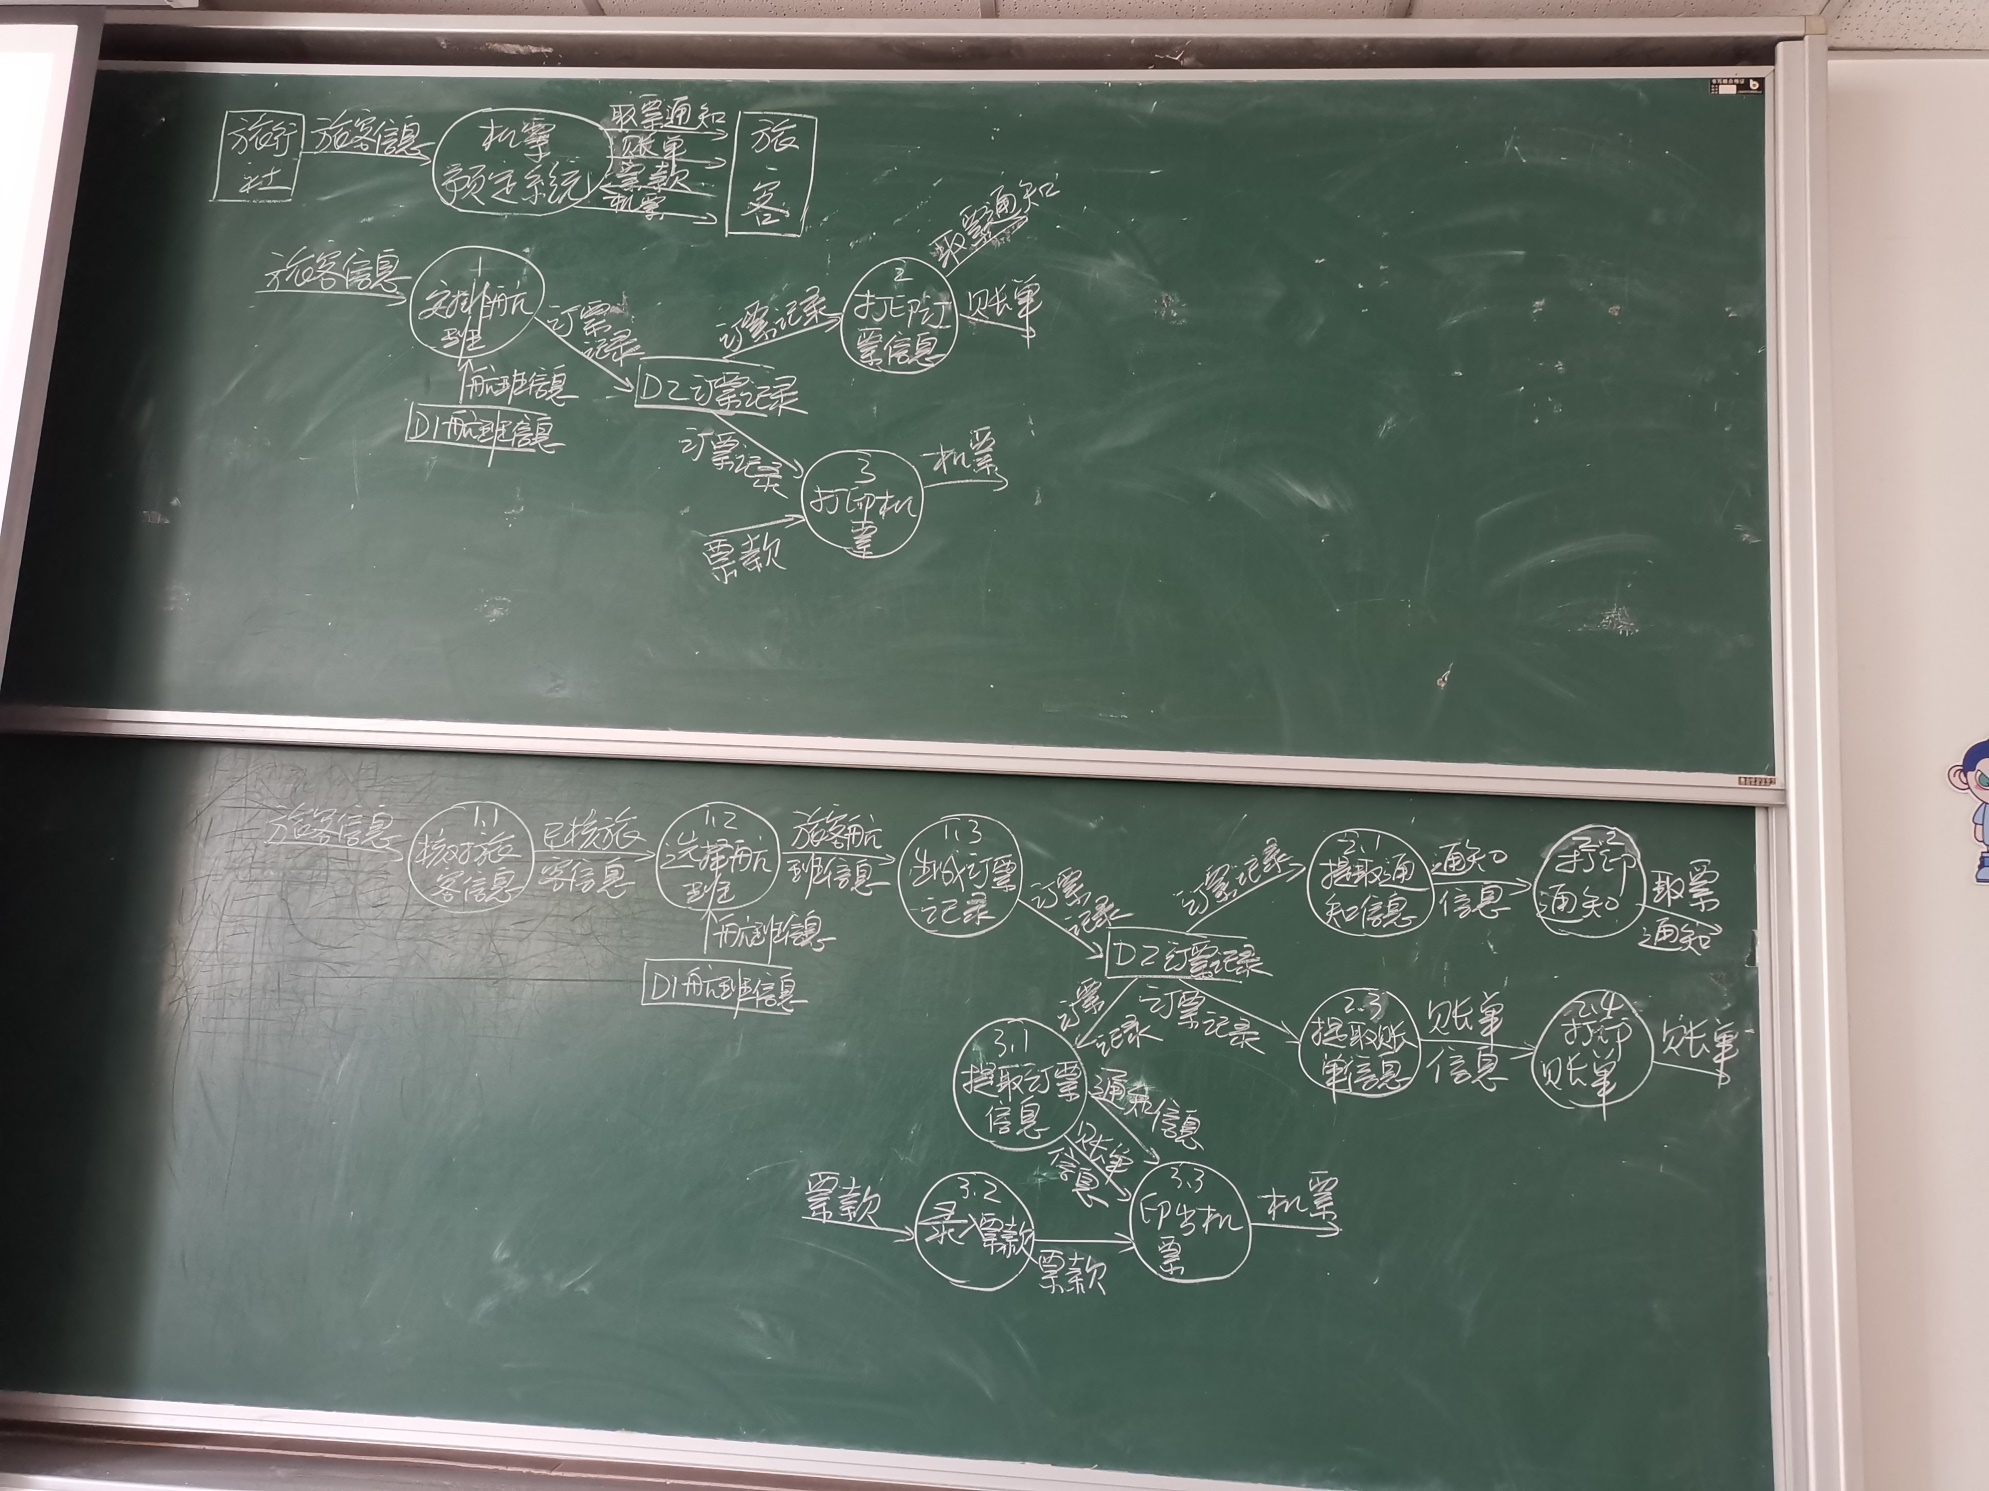 旅行
社
旅客信息
机票
预定系统
取票通知
账单
票款
机票
旅
客
旅客信息
1
安排航
班
航班信息
D1 航班信息
订票
记录
D2 订票记录
订票记录
2
打印订
票信息
取票通知
账单
订票
记录
3
打印机
票
票款
机票
旅客信息
1.1
核对旅
客信息
已核旅
客信息
1.2
选择航
班
航班信息
D1 航班信息
旅客航
班信息
1.3
生成订票
记录
订票
记录
D2 订票记录
订票记录
2.1
提取通
知信息
通知
信息
2.2
打印
通知
取票
通知
订票
记录
2.3
提取账
单信息
账单
信息
2.4
打印
账单
账单
订票
记录
3.1
提取订票
信息
通知信息
账单
信息
票款
3.2
录入票款
票款
3.3
印出机
票
机票